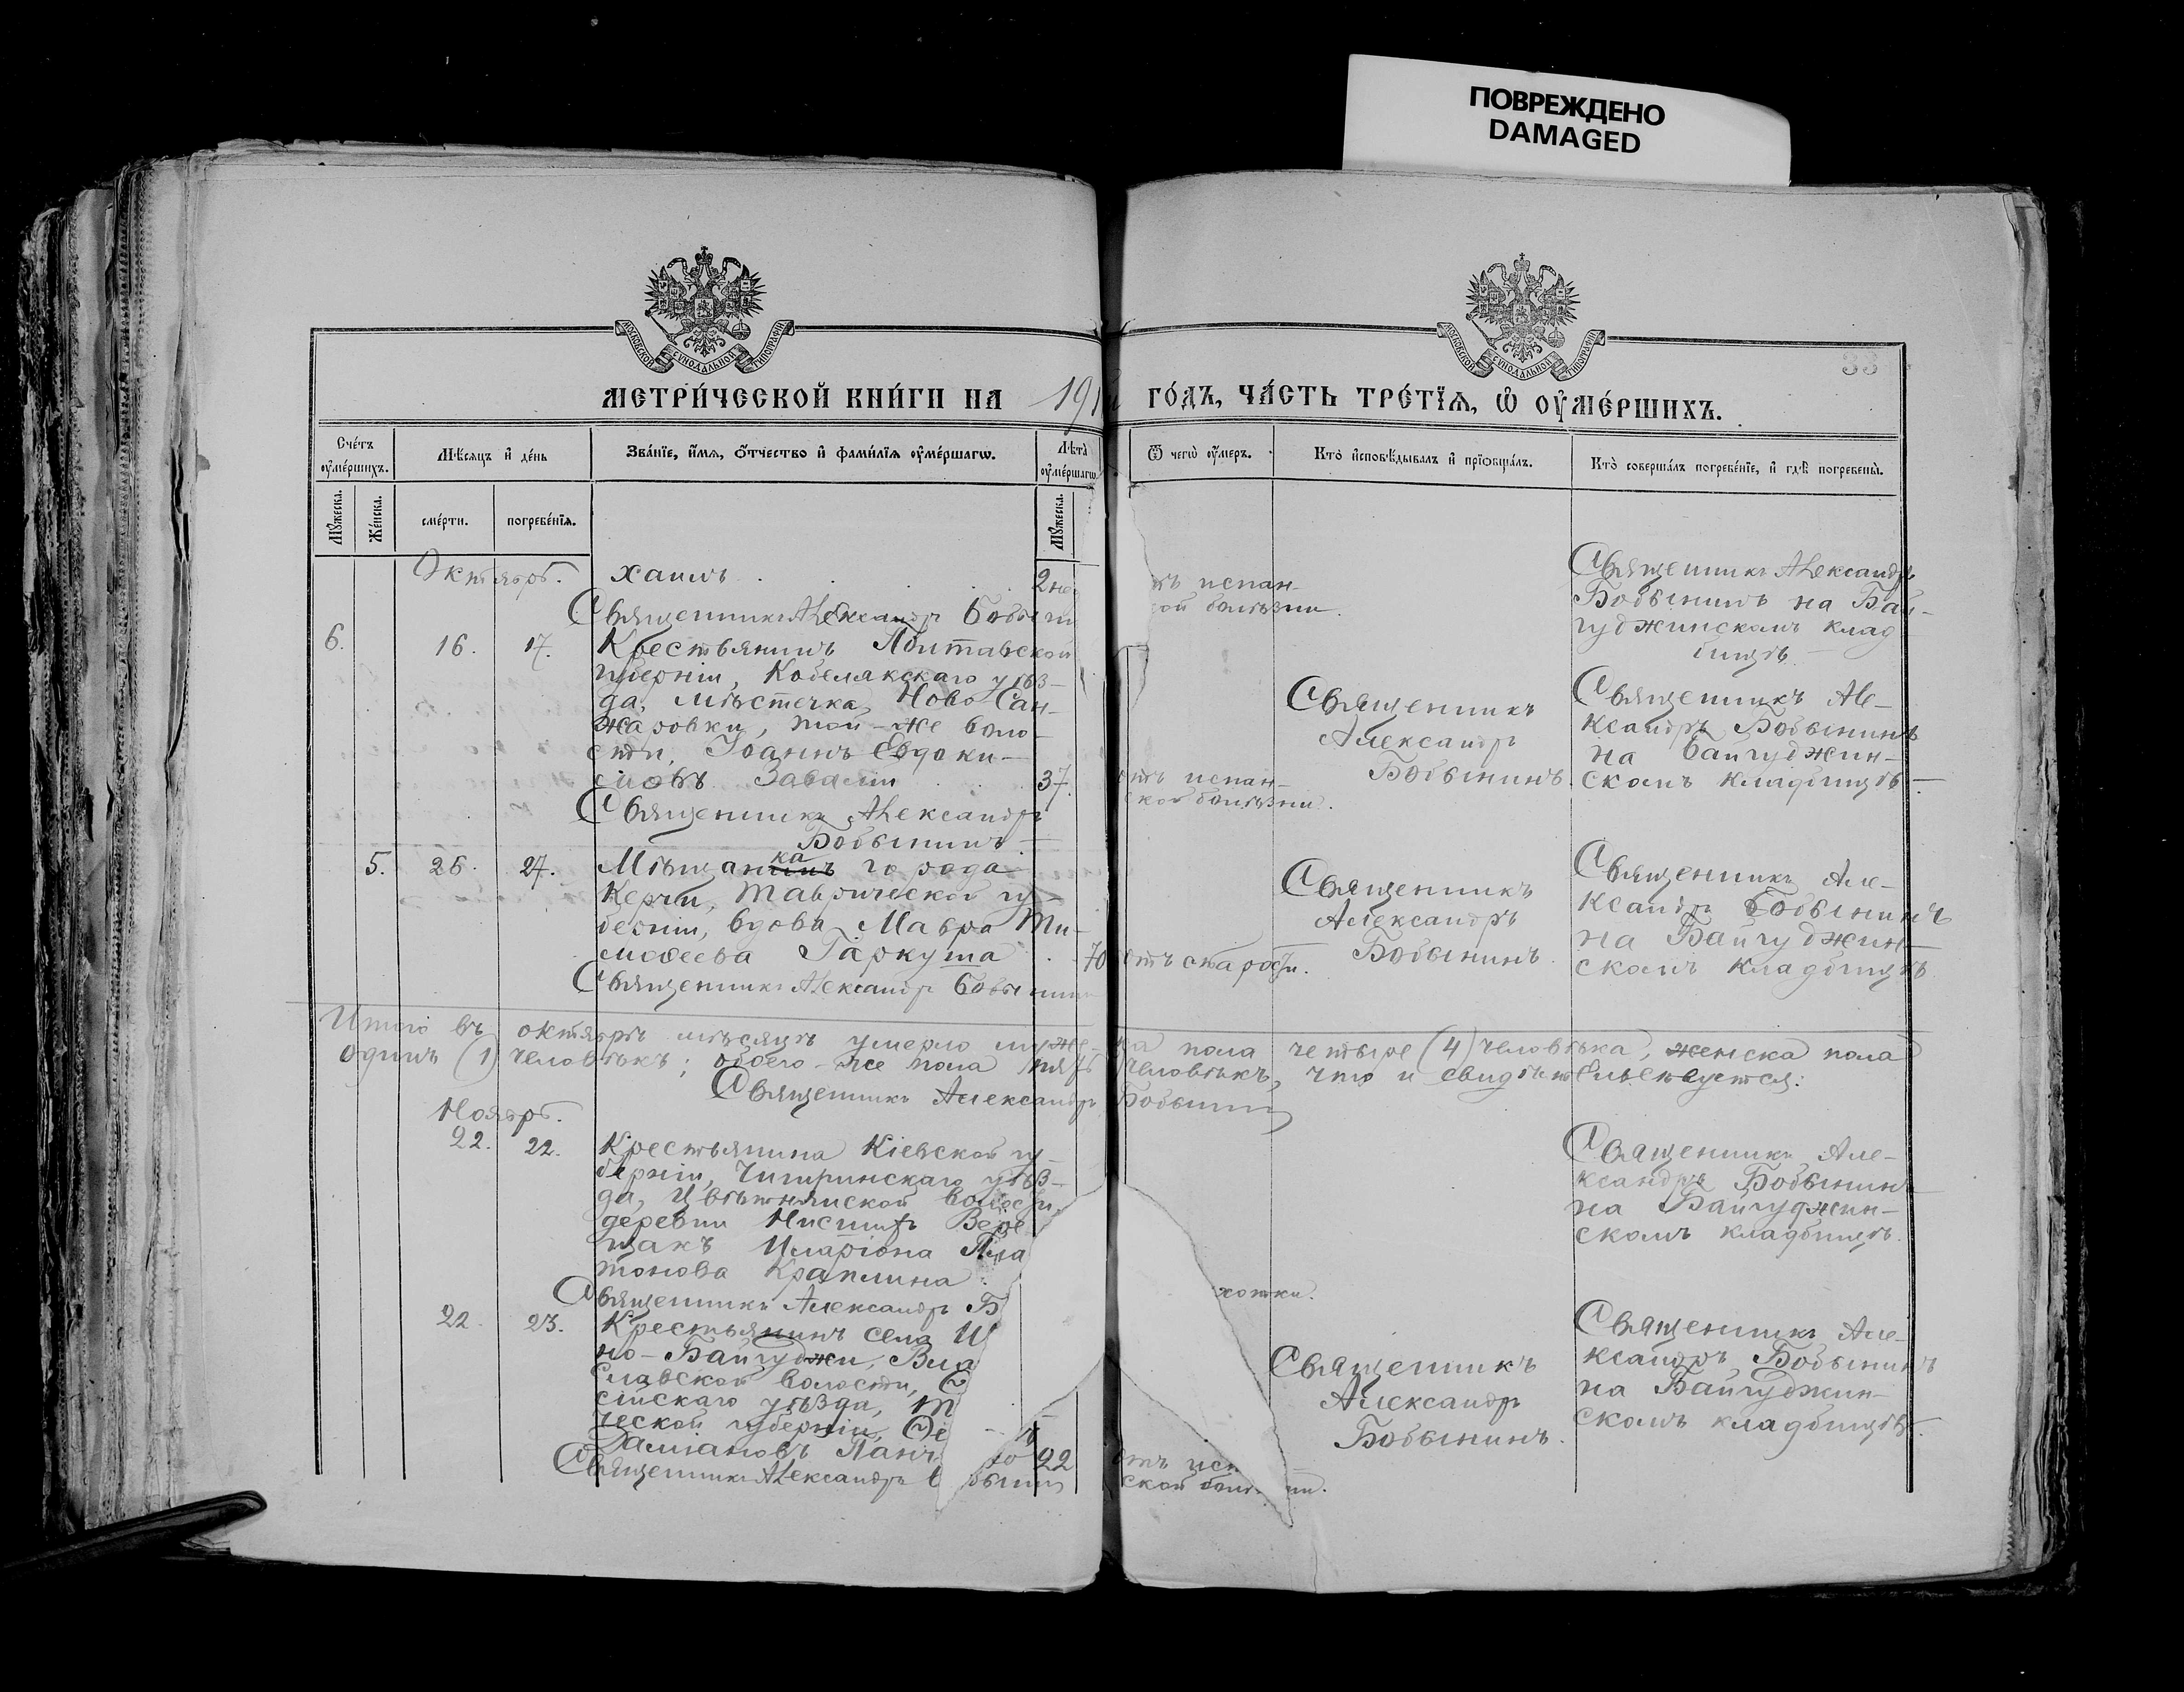 ПОВРЕЖДЕНО
DAMAGED
МОСКОВСКОЙ СУНОДАЛЬНОЙ ТИПОГРАФІИ
МОСКОВСКОЙ СУНОДАЛЬНОЙ ТИПОГРАФІИ
33
МЕТРИ́ЧЕСКОЙ КНИ́ГИ НА 191
ГО́ДЪ, ЧА́СТЬ ТРЕ́ТЇѦ, Ѽ ОУ҆МЕ́РШИХЪ.
Сче́тъ оу҆ме́ршихъ.
Мѣ́сяцъ и҆ де́нь
Зва́нїе, и҆́мѧ, ѻ҆́тчество и҆ фами́лїѧ оу҆ме́ршагѡ.
Лѣ́та оу҆ме́ршагѡ
Ѿ чегѡ̀ оу҆́меръ.
Кто̀ и҆сповѣ́дывалъ и҆ прїѻбща́лъ.
Кто̀ соверша́лъ погребе́нїе, и҆ гдѣ̀ погребены̀.
Мꙋ́жеска.
Же́нска.
сме́рти.
погребе́нїѧ.
Мꙋ́жеска.
Октябрь.
хаилъ
Священникъ Александръ Бобынин
испан-
ской болѣзни.
Священникъ Александръ
Бобынинъ на Бай-
гуджинскомъ клад
бищѣ
6. 16. 17.
Крестьянинъ Полтавской
губерніи, Кобелякскаго уѣз-
да, мѣстечка Ново Сан-
жаровки, той-же воло-
сти, Іоаннъ Евдоки-
мовъ 37.
Священникъ Александръ
Бобынинъ
отъ испан-
ской болѣзни.
Священникъ
Александръ
Бобынинъ.
Священникъ Але-
ксандръ Бобынинъ
на Байгуджин-
скомъ кладбищѣ.
5. 27.
Мѣщанка города
Керчи, Таврической гу-
берніи, вдова Мавра Ти-
моѳеева Гаркуша 70
Священникъ Александръ Бобынин
отъ старости.
Священникъ
Александръ
Бобынинъ.
Священникъ Але-
ксандръ Бобынинъ
на Байгуджин-
скомъ кладбищѣ
Итого въ октябрѣ мѣсяцѣ умерло муже-
ска пола четыре (4) человѣка, женска пола
одинъ (1) человѣкъ; обоего-же пола пять
человѣкъ, что и свидѣтельствуется:
Священникъ Александръ Бобынин
Ноябрь.
22. 22.
Крестьянина Кіевской гу-
берніи, Чигиринскаго уѣз-
да, Цвѣтнянской волости,
деревни Вере
щакъ Иларіона Пла
тонова Краплина
Священникъ Александръ Б
хотки.
Священникъ Але-
ксандръ Бобынин
на Байгуджин-
скомъ кладбищѣ.
22. 23.
Крестьянинъ села
но-Байгуджи, Вла
славской волости,
сійскаго уѣзда, Т
ческой губерніи,
Даміановъ 22
Священникъ Александръ
отъ исп
ской бол
Священникъ
Александръ
Бобынинъ.
Священникъ Але-
ксандръ Бобынинъ
на Байгуджин-
скомъ кладбищѣ.